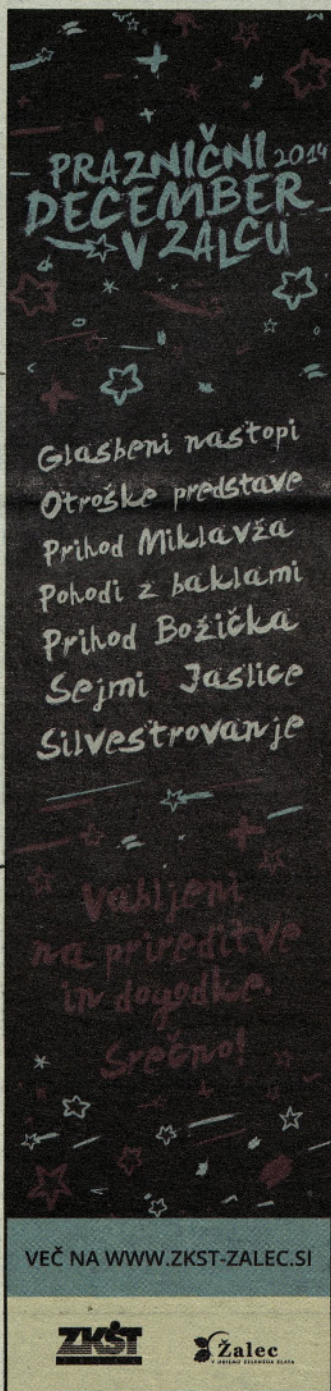 PRAZNIČNI 2014
DECEMBER
V ŽALCU
Glasbeni nastopi
Otroške predstave
Prihod Miklavža
Pohodi z baklami
Prihod Božička
Sejmi Jaslice
Silvestrovanje
Vabljeni
na prireditve
in dogodke.
Srečno!
VEČ NA WWW.ZKST-ZALEC.SI
ZKŠT
Žalec
V OBJEMU ZELENEGA ZLATA